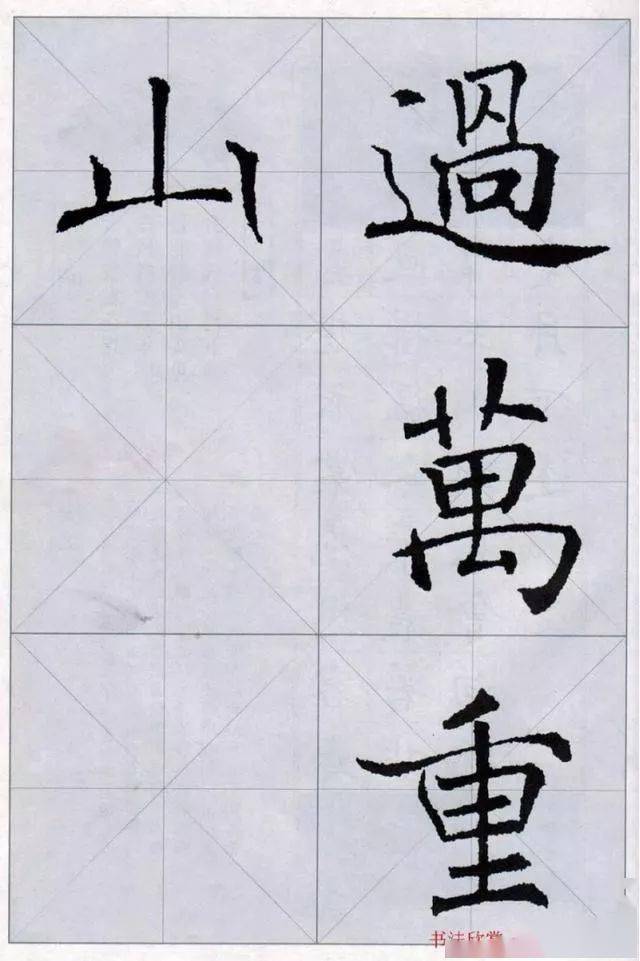 過萬重
山
书法欣赏